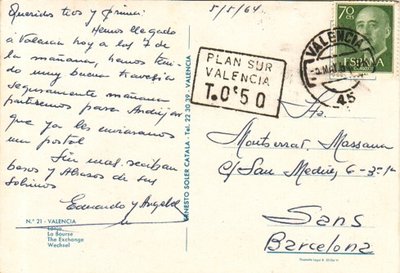 Queridos tios y prima:
5/5/64
Hemos llegado
a Valencia hoy a las 7 de
la mañana, hemos teni-
do muy buena travesia
seguramente mañana
partiremos para Andújar
que ya les enviaremos
una postal
Sin mas, reciban
besos y abrazos de sus
sobrinos
Eduardo y Angela
N.º 21 - VALENCIA
La Bourse
The Exchange
Wechsel
ERNESTO SOLER CATALA - Tel. 22 30 39 - VALENCIA
PLAN SUR
VALENCIA
T. 0'50
VALENCIA
45
70
CTS
ESPAÑA
CORREOS
Montserrat Massana
C/ San Medin, 6-3º-1ª
Sans
Barcelona